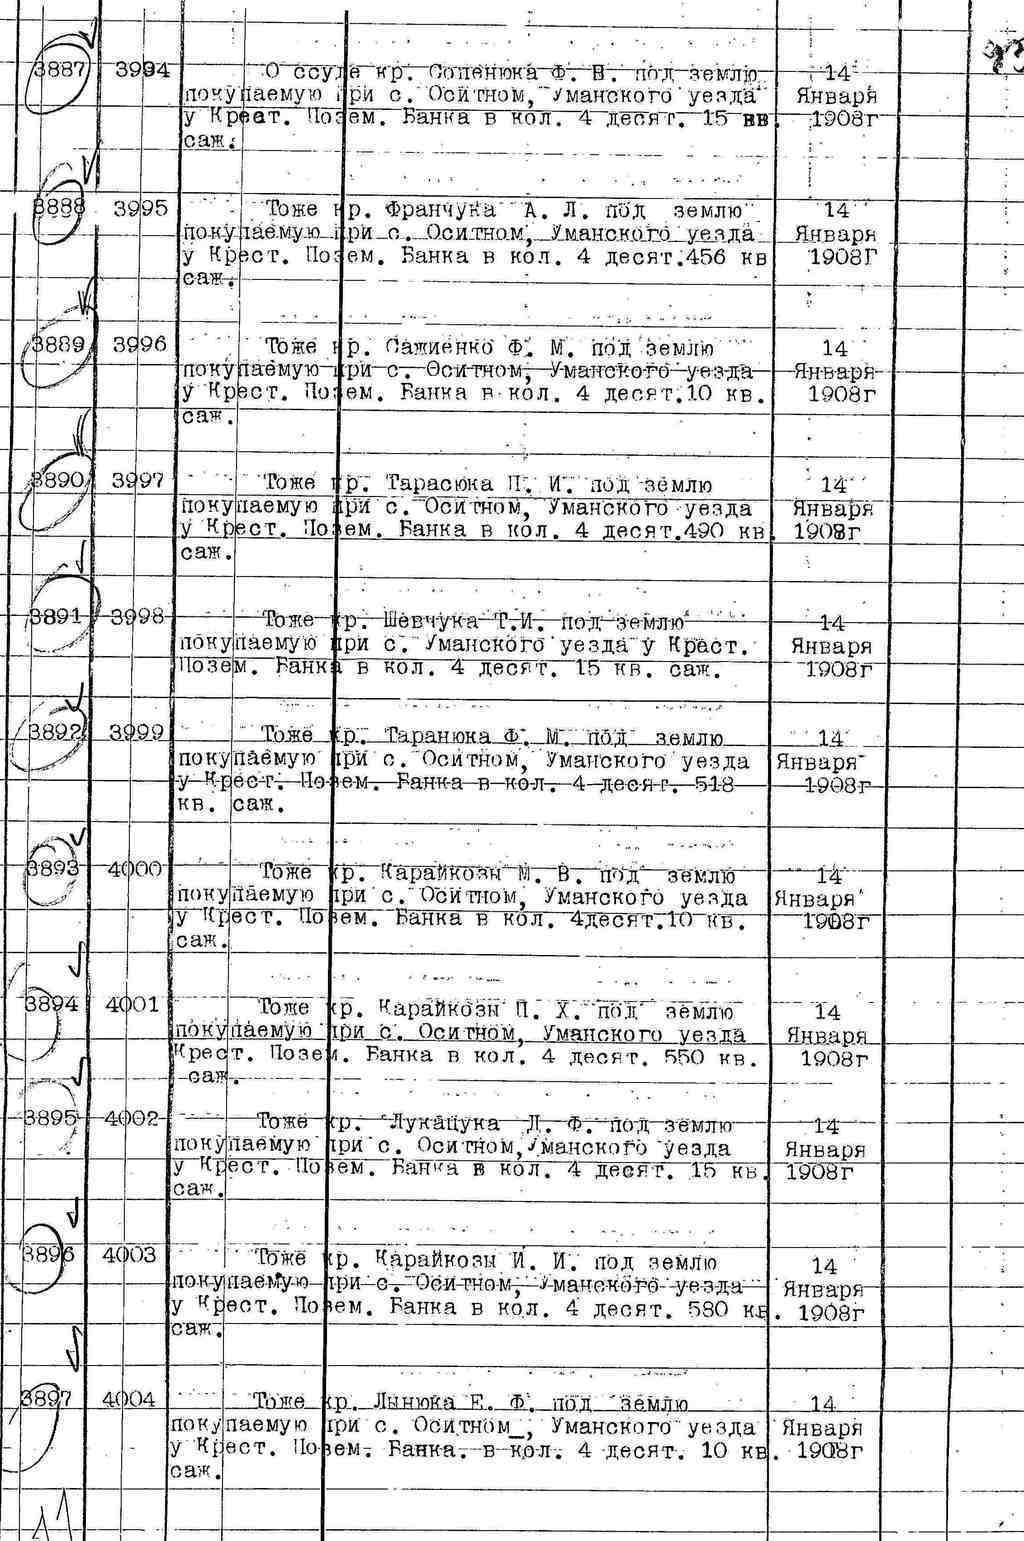 3887 3994 О ссуде кр. Сопенюка Ф. В. под землю 14
покупаемую при с. Оситном, Уманского уезда Января
у Крест. Позем. Банка в кол. 4 десят. 15 кв. 1908г
саж.
3888 3995 Тоже кр. Франчука А. Л. под землю 14
покупаемую при с. Оситном, Уманского уезда Января
у Крест. Позем. Банка в кол. 4 десят.456 кв 1908г
саж.
3889 3996 Тоже кр. Сажиенко Ф. М. под землю 14
покупаемую при с. Оситном, Уманского уезда Января
у Крест. Позем. Банка в кол. 4 десят.10 кв. 1908г
саж.
3890 3997 Тоже кр. Тарасюка П. И. под землю 14
покупаемую при с. Оситном, Уманского уезда Января
у Крест. Позем. Банка в кол. 4 десят.490 кв. 1908г
саж.
3891 3998 Тоже кр. Шевчука Т.И. под землю 14
покупаемую при с. Уманского уезда у Крест. Января
Позем. Банка в кол. 4 десят. 15 кв. саж. 1908г
3892 3999 Тоже кр. Таранюка Ф. М. под землю 14
покупаемую при с. Оситном, Уманского уезда Января
у Крест. Позем. Банка в кол. 4 десят. 518 1908г
кв. саж.
3893 4000 Тоже кр. Карайкозы М. В. под землю 14
покупаемую при с. Оситном, Уманского уезда Января
у Крест. Позем. Банка в кол. 4десят.10 кв. 1908г
саж.
3894 4001 Тоже кр. Карайкозы П. Х. под землю 14
покупаемую при с. Оситном, Уманского уезда Января
Крест. Позем. Банка в кол. 4 десят. 550 кв. 1908г
саж.
3895 4002 Тоже кр. Лукащука Д. Ф. под землю 14
покупаемую при с. Оситном, Уманского уезда Января
у Крест. Позем. Банка в кол. 4 десят. 15 кв. 1908г
саж.
3896 4003 Тоже кр. Карайкозы И. И. под землю 14
покупаемую при с. Оситном, Уманского уезда Января
у Крест. Позем. Банка в кол. 4 десят. 580 кв. 1908г
саж.
3897 4004 Тоже кр. Лынюка Е. Ф. под землю 14
покупаемую при с. Оситном_, Уманского уезда Января
у Крест. Позем. Банка. в кол. 4 десят. 10 кв. 1908г
саж.
11